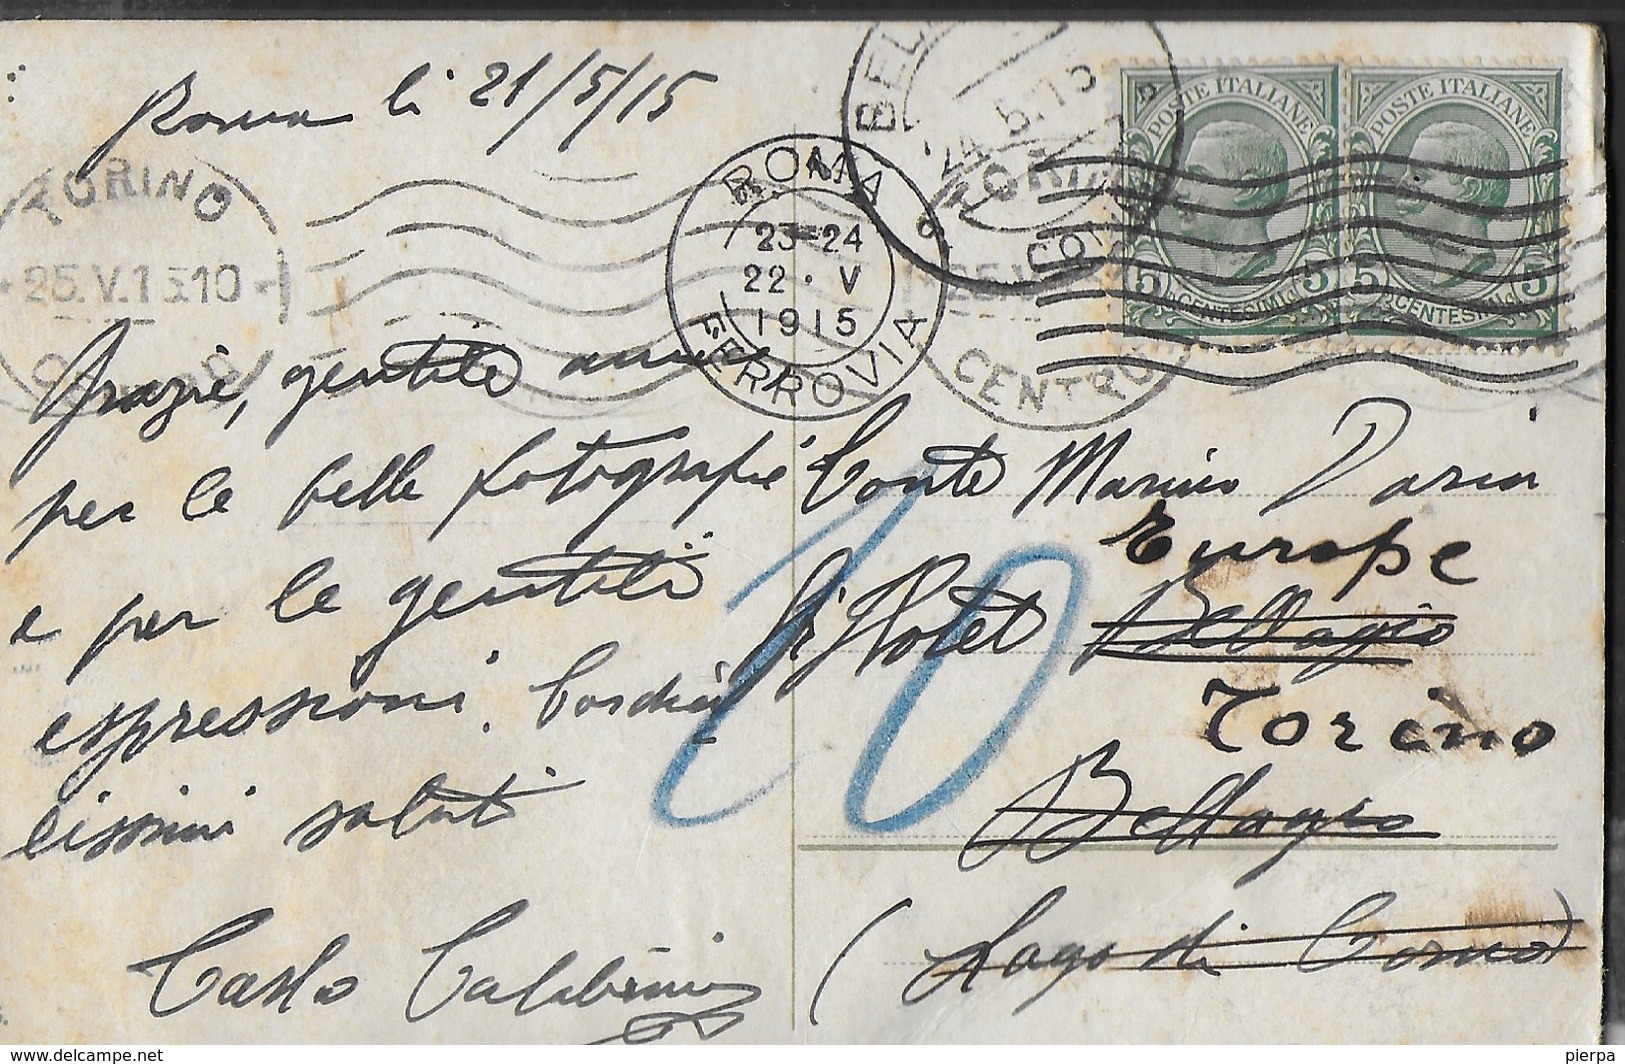 Roma li 21/5/15
TORINO
25.V.15 10
ROMA
23-24
22·V
1915
FERROVIA
24.5.15
CENTRO
POSTE ITALIANE
5 CENTESIMI 5
POSTE ITALIANE
5 CENTESIMI 5
Grazie, gentile
per le belle fotografie
e per le gentili
espressioni. Cordia
lissimi saluti
Carlo
Conte Marino
Europe
Hotel Bellagio
Torino
Bellagio
(Lago di Como)
10
www.delcampe.net
pierpa